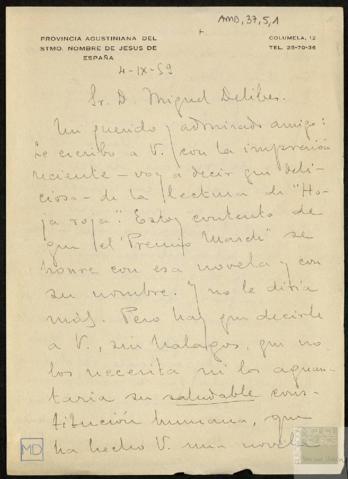 AMD, 37, 5, 1
PROVINCIA AGUSTINIANA DEL
STMO. NOMBRE DE JESUS DE
ESPAÑA
COLUMELA, 12
TEL. 25-70-36
4-IX-59
Sr. D. Miguel Delibes.
Mi querido y admirado amigo:
Le escribo a V. con la impresión
reciente - voy a decir que deli-
ciosa - de la lectura de "Ho-
ja roja". Estoy contento de
que el "Premio March" se
honre con esa novela y con
su nombre. Y no le diría
más. Pero hay que decirle
a V., sin halagos, que no
los necesita ni los aguan-
taría su saludable cons-
titución humana, que
ha hecho V. una novela
MD